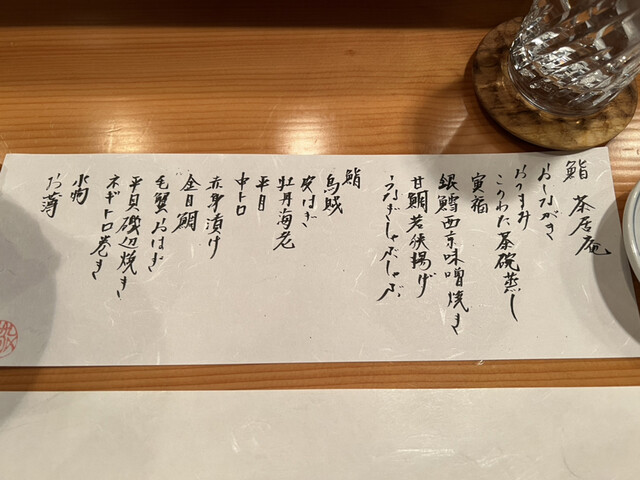 鮨 茶居庵
おしながき
おつまみ
このわた茶碗蒸し
寅福
銀鱈西京味噌焼き
甘鯛若狭揚げ
うなぎしゃぶしゃぶ
鮨
烏賊
皮はぎ
牡丹海老
平目
中トロ
赤身漬け
金目鯛
毛蟹おはぎ
平貝磯辺焼き
ネギトロ巻き
水物
お薄